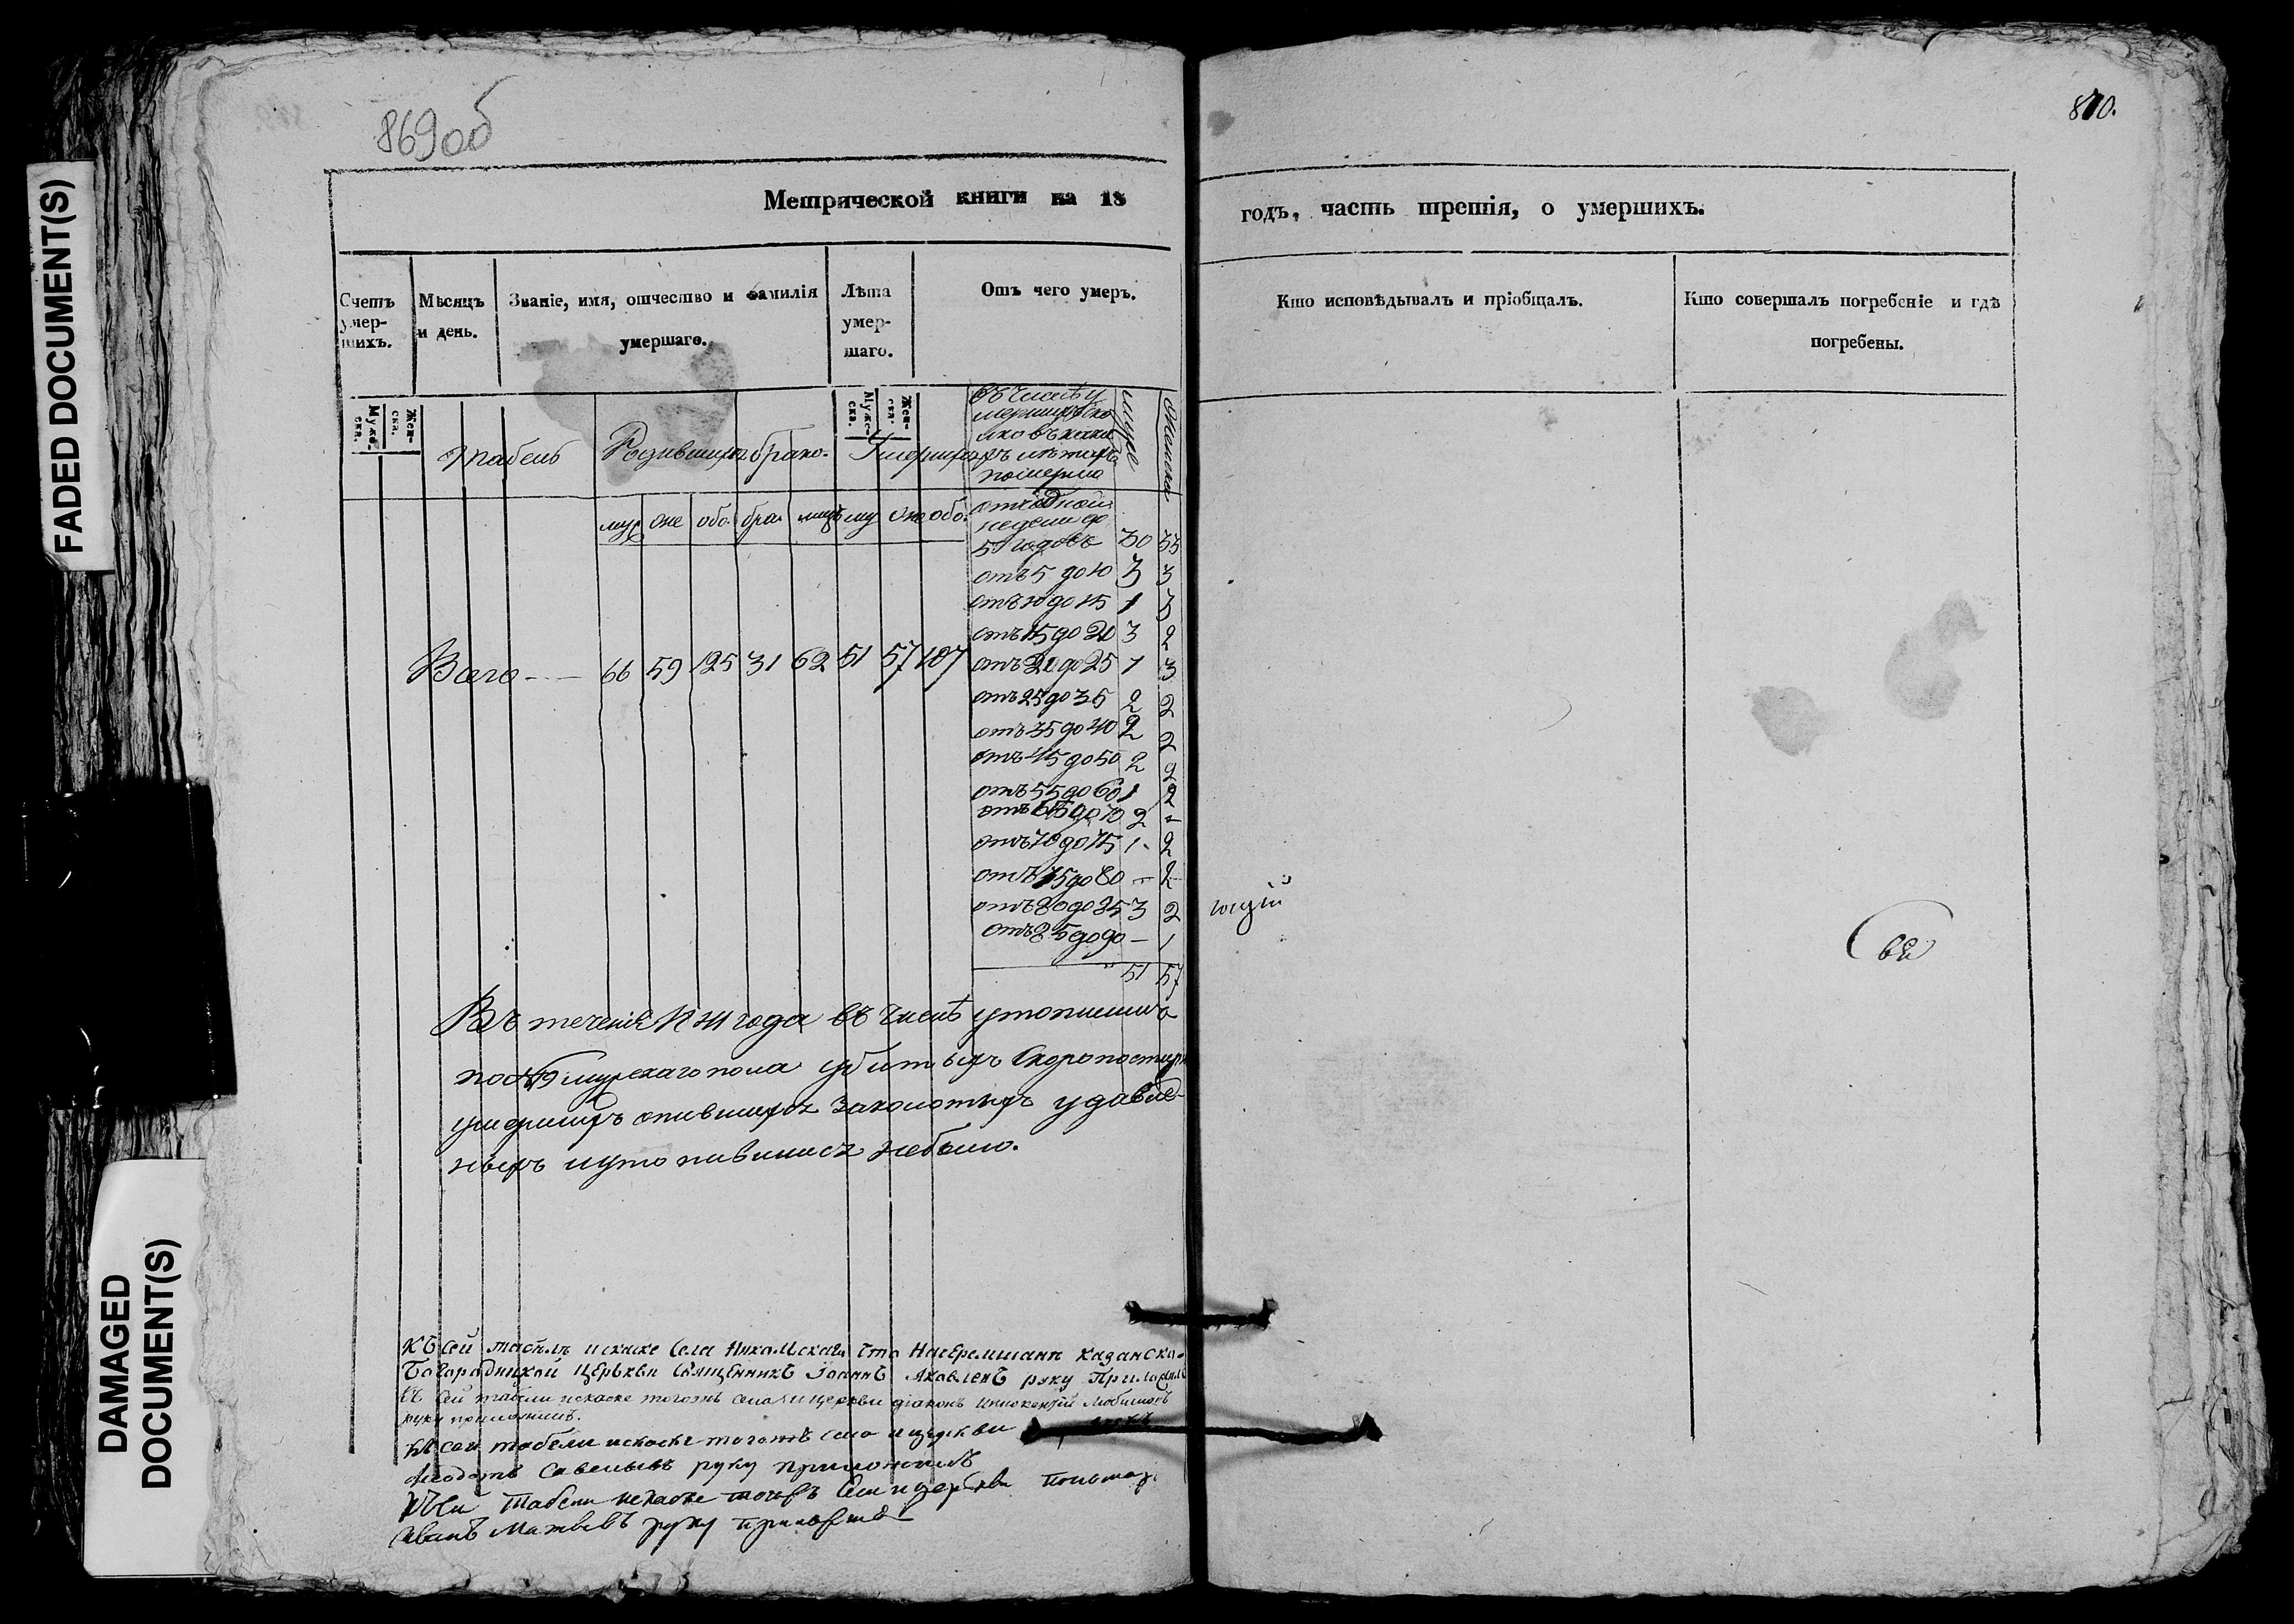 FADED DOCUMENT(S)
DAMAGED
DOCUMENT(S)
869об
870.
Метрической книги на 18
годъ, часть третія, о умершихъ.
Счетъ умер-шихъ.
Мѣсяцъ и день.
Званіе, имя, отчество и фамилія умершаго.
Лѣта умер-шаго.
Отъ чего умеръ.
Кто исповѣдывалъ и пріобщалъ.
Кто совершалъ погребеніе и гдѣ погребены.
Муже-ска. Жен-ска.
Муже-ска. Жен-ска.
Табель
брако-
въ числѣ у
мершихъ
померло
муж же обо. бра. лицъ му же обо.
отъ одной
недели до
5 годовъ 30 33
отъ 5 до 10 3 3
отъ 10 до 15 1 3
отъ 15 до 20 3 2
отъ 20 до 25 1 3
отъ 25 до 35 2 2
отъ 35 до 40 2 2
отъ 45 до 50 2 2
отъ 55 до 60 1 2
отъ 65 до 70 2 -
отъ 70 до 75 1 - 2
отъ 75 до 80 - 2
отъ 80 до 85 3 2
отъ 85 до 90 - 1
51 57
Всего - - 66 59 125 31 62 51 57 107
Въ теченіе года въ числѣ
мужескаго пола убитыхъ скоропостиж
умершихъ опившихся заколотыхъ удавле-
ныхъ и утопившихся небыло.
Къ сей табелѣ и скаске Села Никольскаго что Казанско-
Богородицкой Церькви Священникъ Іоаннъ Яковлевъ руку Приложилъ
Къ сей табели искаске тогожъ села и церкви діаконъ Инокентій Любимовъ
руку приложилъ.
Къ сей табели искаске тогожъ села и церкви
Савельевъ руку приложилъ
Къ сей Табели искаске тогожъ Села и церкви Пономарь
Иванъ Матвѣевъ руку приложилъ